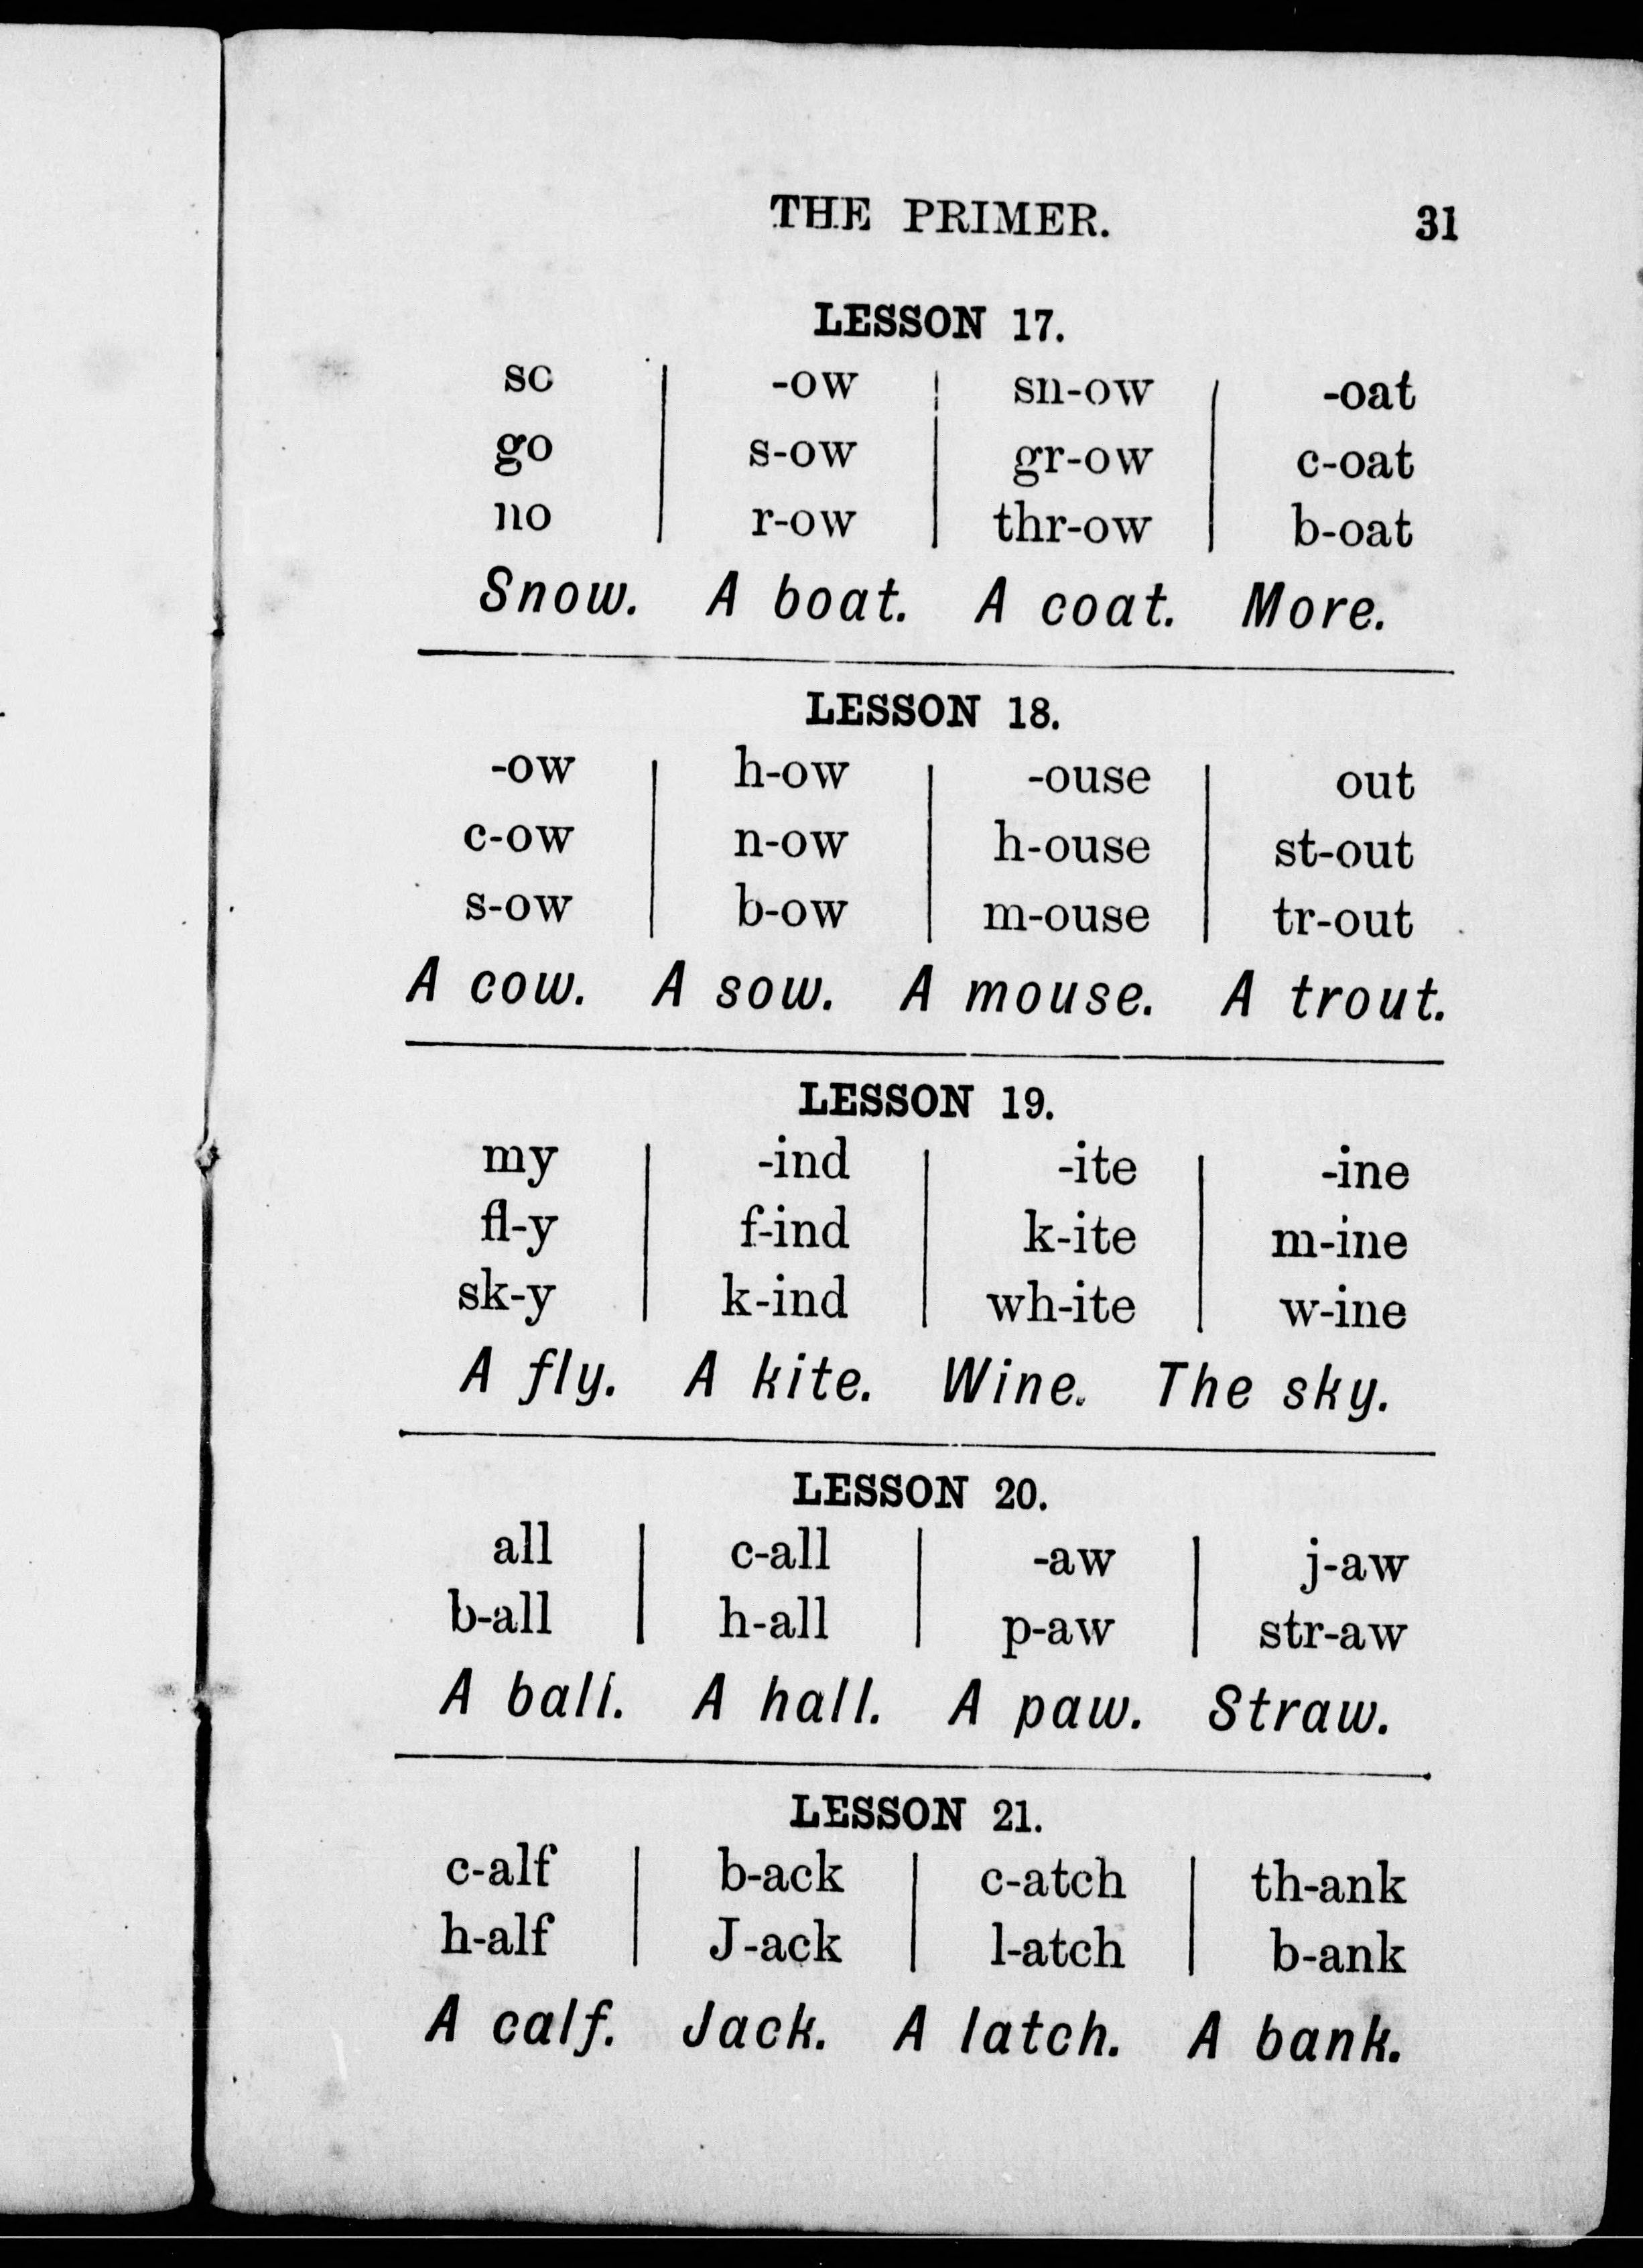 THE PRIMER. 31
LESSON 17.
so | -ow | sn-ow | -oat
go | s-ow | gr-ow | c-oat
no | r-ow | thr-ow | b-oat
Snow. A boat. A coat. More.
LESSON 18.
-ow | h-ow | -ouse | out
c-ow | n-ow | h-ouse | st-out
s-ow | b-ow | m-ouse | tr-out
A cow. A sow. A mouse. A trout.
LESSON 19.
my | -ind | -ite | -ine
fl-y | f-ind | k-ite | m-ine
sk-y | k-ind | wh-ite | w-ine
A fly. A kite. Wine. The sky.
LESSON 20.
all | c-all | -aw | j-aw
b-all | h-all | p-aw | str-aw
A ball. A hall. A paw. Straw.
LESSON 21.
c-alf | b-ack | c-atch | th-ank
h-alf | J-ack | l-atch | b-ank
A calf. Jack. A latch. A bank.